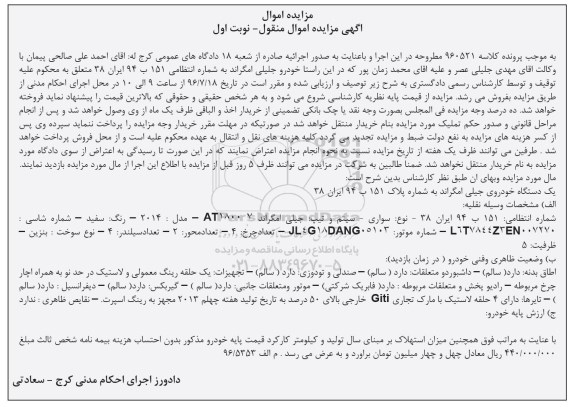 مزایده اموال
آگهی مزایده اموال منقول- نوبت اول
به موجب پرونده کلاسه ۹۶۰۵۲۱ مطروحه در این اجرا و باعنایت به صدور اجرائیه صادره از شعبه ۱۸ دادگاه های عمومی کرج له: آقای احمد علی صالحی پیمان با
وکالت آقای مهدی جلیلی عصر و علیه آقای محمد زمان پور که در این راستا خودرو جلیلی امگراند به شماره انتظامی ۱۵۱ ب ۹۴ ایران ۳۸ متعلق به محکوم علیه
توقیف و توسط کارشناس رسمی دادگستری به شرح زیر توصیف و ارزیابی شده و مقرر است در تاریخ ۹۶/۷/۱۸ از ساعت ۹ الی ۱۰ در محل اجرای احکام مدنی از
طریق مزایده بفروش می رشد. مزایده از قیمت پایه نظریه کارشناسی شروع می شود و به هر شخص حقیقی و حقوقی که بالاترین قیمت را پیشنهاد نماید فروخته
خواهد شد. ده درصد وجه مزایده فی المجلس بصورت وجه نقد یا چک بانکی تضمینی از خریدار اخذ و الباقی ظرف یک ماه از وی وصول خواهد شد و پس از انجام
مراحل قانونی و صدور حکم تملیک مورد مزایده بنام خریدار منتقل خواهد شد در صورتیکه در مهلت مقرر خریدار وجه مزایده را پرداخت ننماید سپرده وی پس
از کسر هزینه های مزایده به نفع دولت ضبط و مزایده تجدید می گردد. کلیه هزینه های نقل و انتقال به عهده محکوم علیه است و از محل فروش پرداخت خواهد
شد . طرفین می توانند ظرف یک هفته از تاریخ مزایده نسبت به نحوه انجام مزایده اعتراض نمایند که در این صورت تا رسیدگی به اعتراض از سوی دادگاه مورد
مزایده به نام خریدار منتقل نخواهد شد. ضمنا طالبین به شرکت در مزایده می توانند ظرف ۵ روز قبل از مزایده با اطلاع این اجرا از مال مورد مزایده بازدید نمایند.
مال مورد مزایده وبهای ان طبق نظر کارشناس بدین شرح است:
یک دستگاه خودروی جیلی امگراند به شماره پلاک ۱۵۱ ب ۹۴ ایران ۳۸
الف) مشخصات وسیله نقلیه:
شماره انتظامی: ۱۵۱ ب ۹۴ ایران ۳۸ - نوع: سواری - سیستم و تیپ: جیلی امگراند - مدل : ۲۰۱۴ – رنگ: سفید – شماره شاسی :
– شماره موتور: – تعدادچرخ: ۴ – تعدادمحور: ۲ – تعدادسیلندر: ۴ – نوع سوخت : بنزین –
ظرفیت: ۵
ب) وضعیت ظاهری وفنی خودرو ( در زمان بازدید):
اطاق بدنه: دارد( سالم) – داشبوردو متعلقات: دارد ( سالم) – صندلی و تودوزی: دارد ( سالم) – تجهیزات: یک حلقه رینگ معمولی و لاستیک در حد نو به همراه آچار
چرخ مربوطه – رادیو پخش و متعلقات مربوطه : دارد( فابریک شرکتی) – موتور ومتعلقات جانبی: دارد( سالم ) – گیربکس: دارد( سالم) – دیفرانسیل : دارد( سالم
) – تایرها: دارای ۴ حلقه لاستیک با مارک تجاری Giti خارجی بالای ۵۰ درصد به تاریخ تولید هفته چهلم ۲۰۱۳ مجهز به رینگ اسپرت. – نقایص ظاهری : ندارد
ج) ارزش پایه خودرو:
با عنایت به مراتب فوق همچنین میزان استهلاک بر مبنای سال تولید و کیلومتر کارکرد قیمت پایه خودرو مذکور بدون احتساب هزینه بیمه نامه شخص ثالث مبلغ
۴۴۰/۰۰۰/۰۰۰ ریال معادل چهل و چهار میلیون تومان براورد و به عرض می رسد . م الف ۹۶/۵۳۵۳
دادورز اجرای احکام مدنی کرج - سعادتی